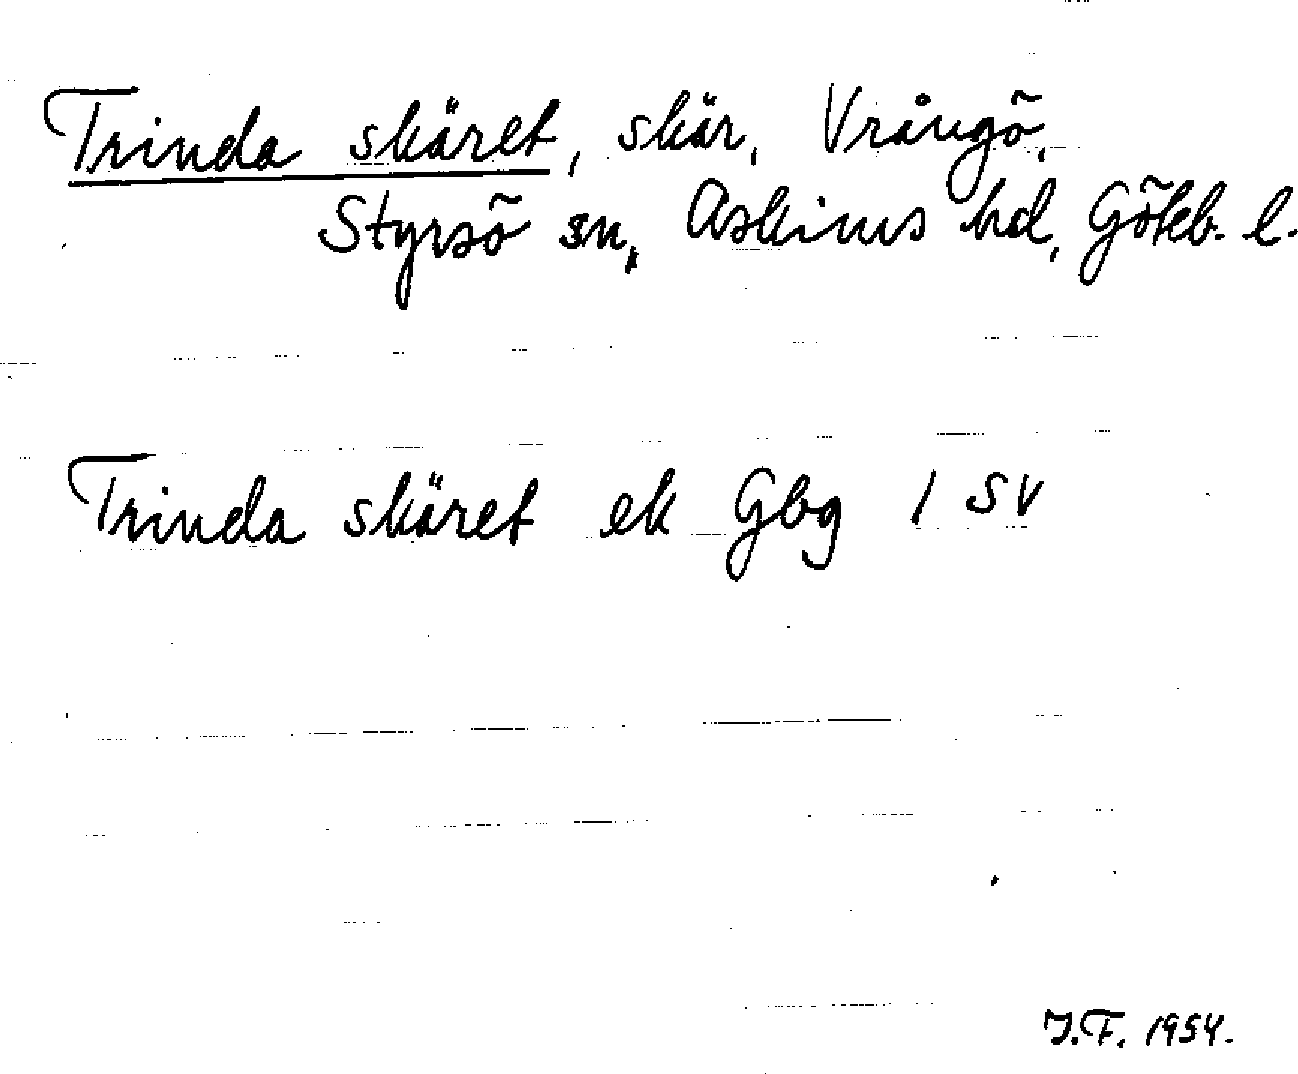 Trinda skäret, skär, Vrångö,
Styrsö sn, Askims hd, Göteb. l.
Trinda skäret ek Gbg 1 SV
J.F. 1954.